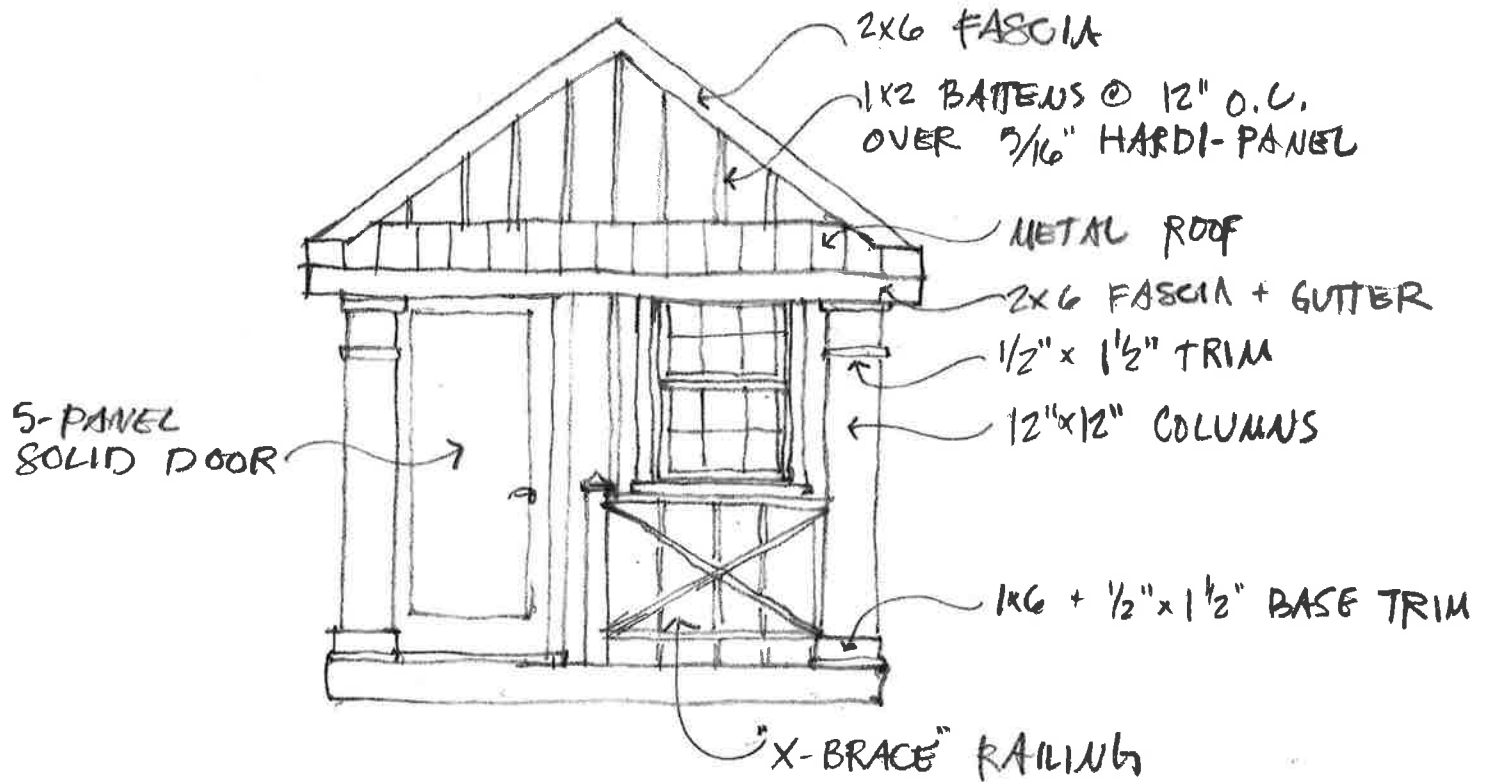 2x6 FASCIA
1x2 BATTENS @ 12" O.C.
OVER 5/16" HARDI-PANEL
METAL ROOF
2x6 FASCIA + GUTTER
1/2" x 1 1/2" TRIM
12"x12" COLUMNS
5-PANEL
SOLID DOOR
1x6 + 1/2" x 1 1/2" BASE TRIM
"X-BRACE" RAILING